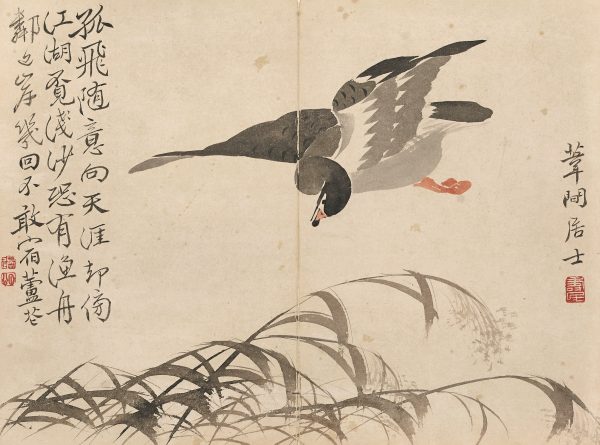 葦間居士
孤飛随意向天涯却傍
江湖覓淺沙恐有漁舟
鄰近岸幾回不敢宿蘆花